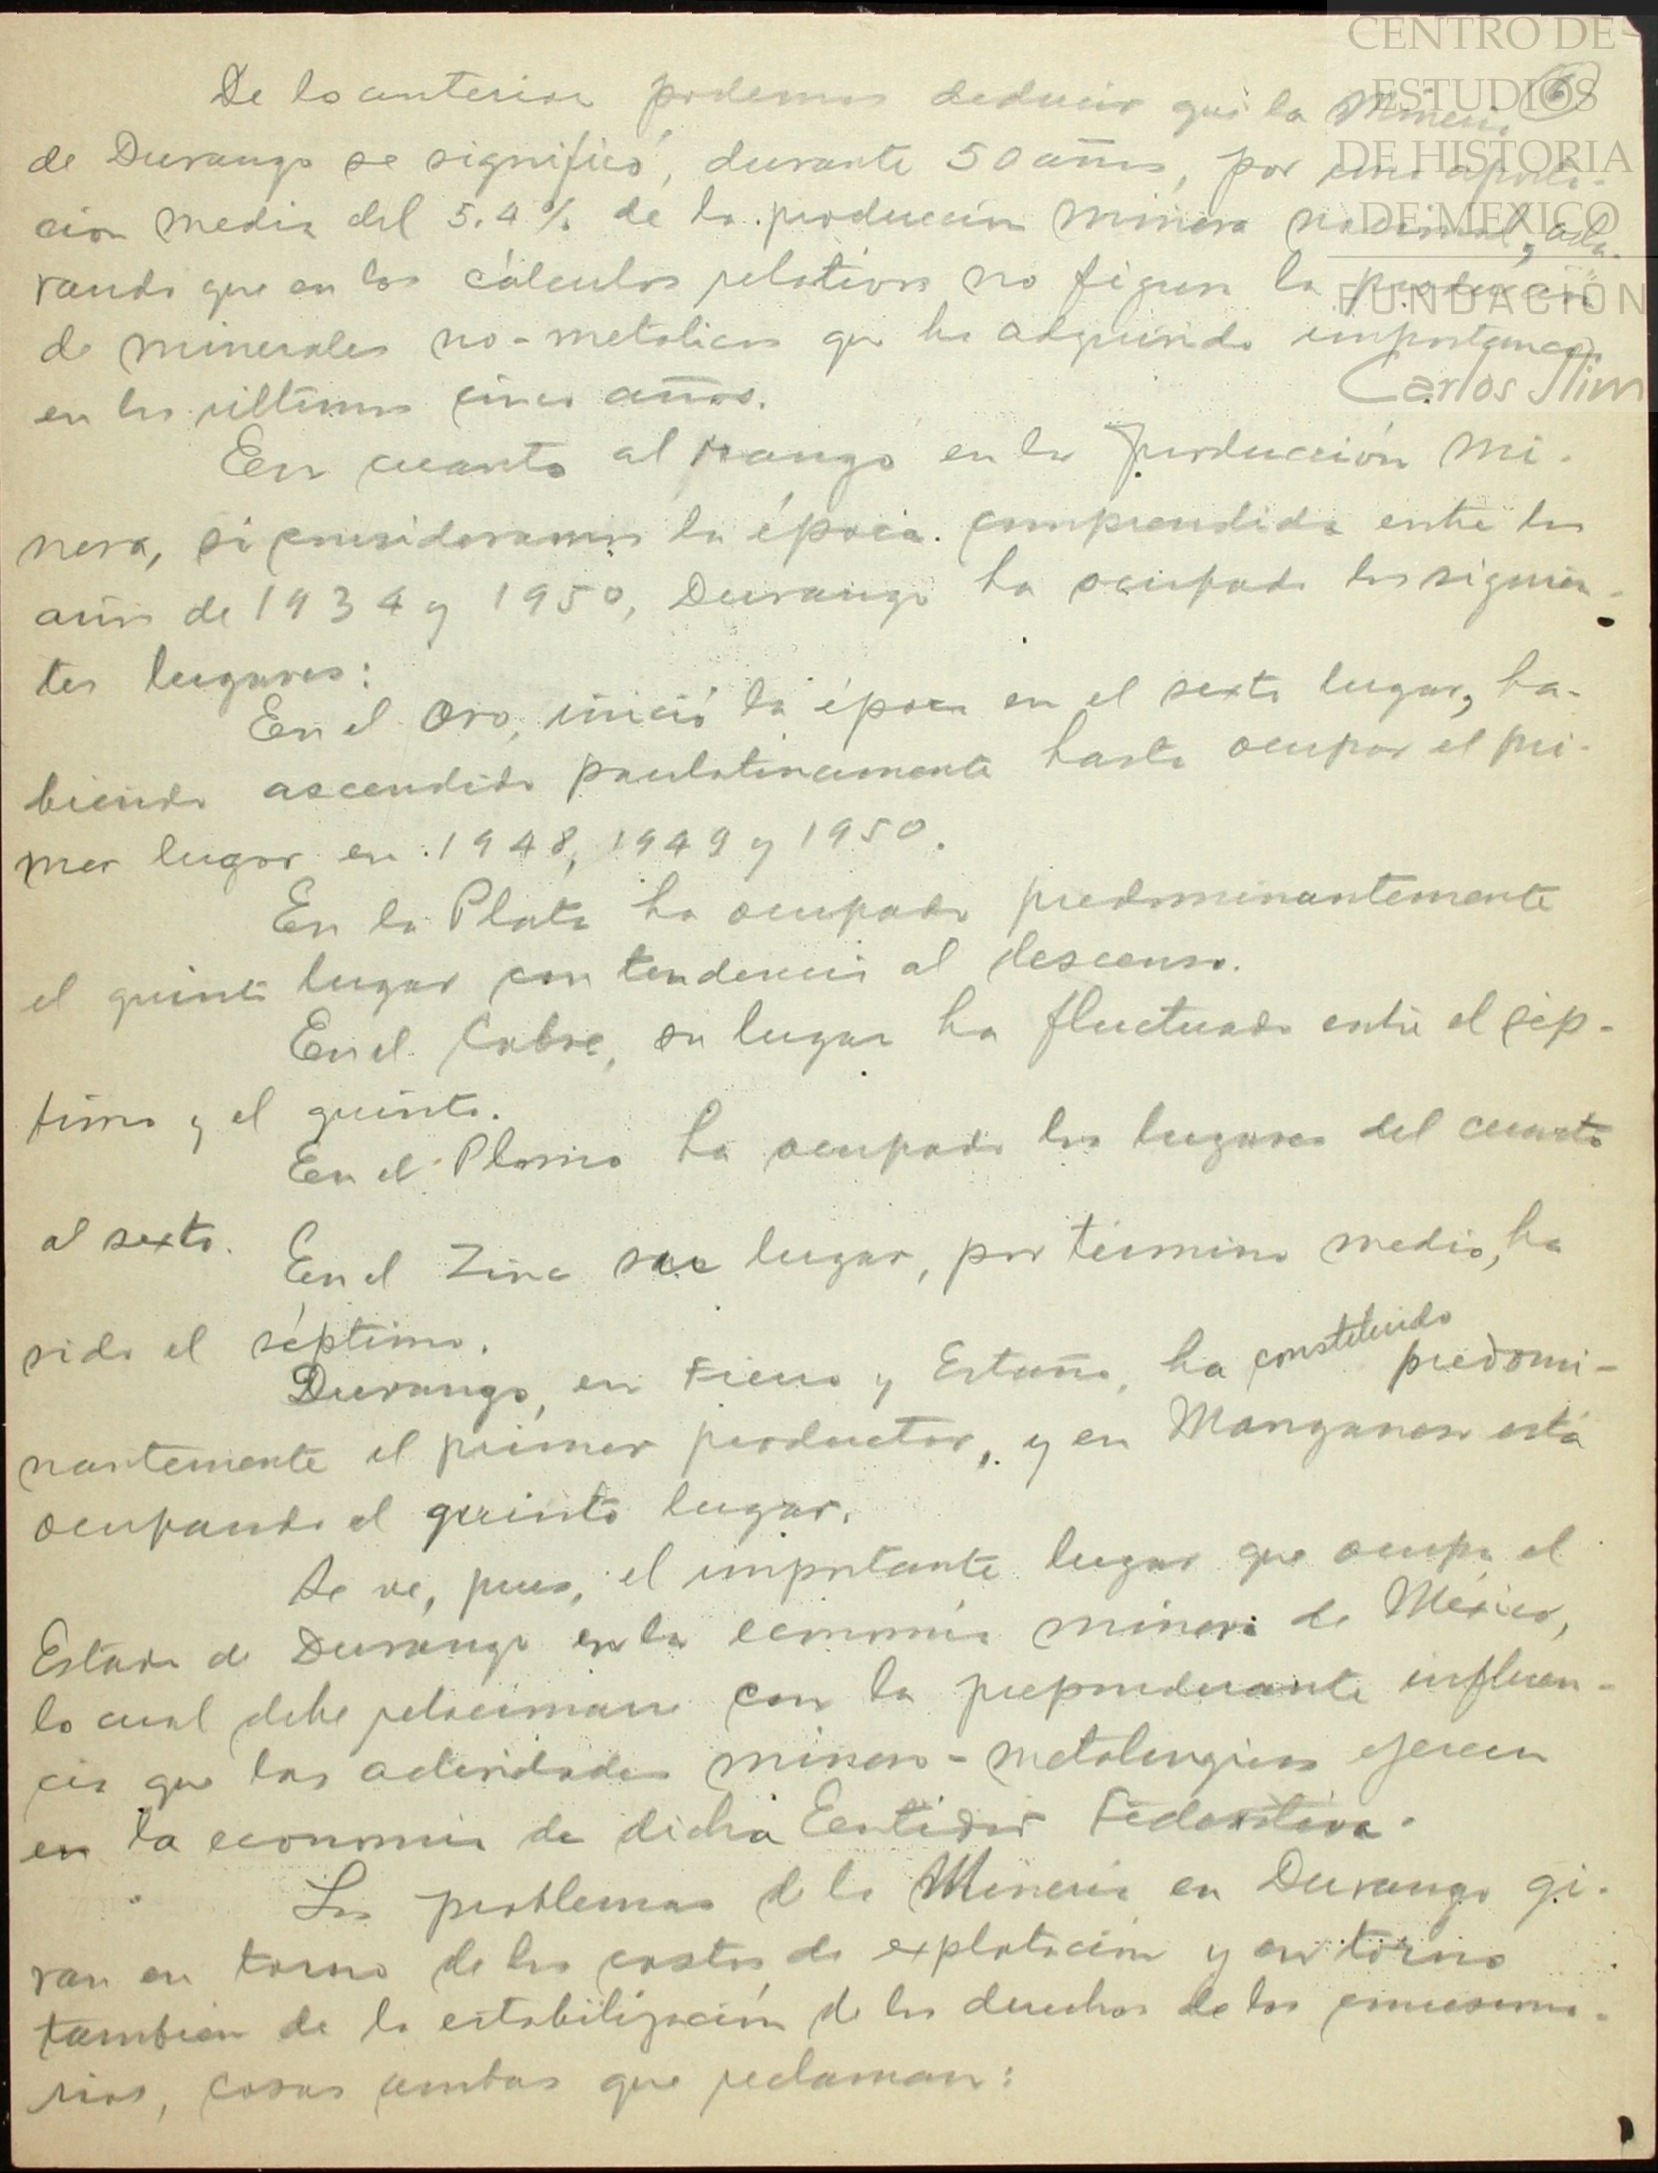 CENTRO DE
ESTUDIOS
DE HISTORIA
DE MEXICO
FUNDACION
Carlos Slim
De lo anterior podemos deducir que la Mineria
de Durango se significó, durante 50 años, por una aporta-
cion media del 5.4% de la producción minera nacional, acla-
rando que en los cálculos relativos no figura la producción
de minerales no-metalicos que ha adquirido importancia
en los ultimos cinco años.
En cuanto al rango en la producción mi-
nera, si consideramos la época comprendida entre los
años de 1934 y 1950, Durango ha ocupado los siguien-
tes lugares:
En el Oro, inició la época en el sexto lugar, ha-
biendo ascendido paulatinamente hasta ocupar el pri-
mer lugar en 1948, 1949 y 1950.
En la Plata ha ocupado predominantemente
el quinto lugar con tendencia al descenso.
En el Cobre, su lugar ha fluctuado entre el sép-
timo y el quinto.
En el Plomo ha ocupado los lugares del cuarto
al sexto.
En el Zinc su lugar, por término medio, ha
sido el séptimo.
Durango, en Fierro y Estaño, ha constituido predomi-
nantemente el primer productor, y en Manganeso está
ocupando el quinto lugar.
Se ve, pues, el importante lugar que ocupa el
Estado de Durango en la economía minera de México,
lo cual debe relacionarse con la preponderante influen-
cia que las actividades minero-metalurgicas ejercen
en la economia de dicha Entidad Federativa.
Los problemas de la Mineria en Durango gi-
ran en torno de los costos de explotación y en torno
tambien de la estabilización de los derechos de los concesiona-
rios, cosas ambas que reclaman: